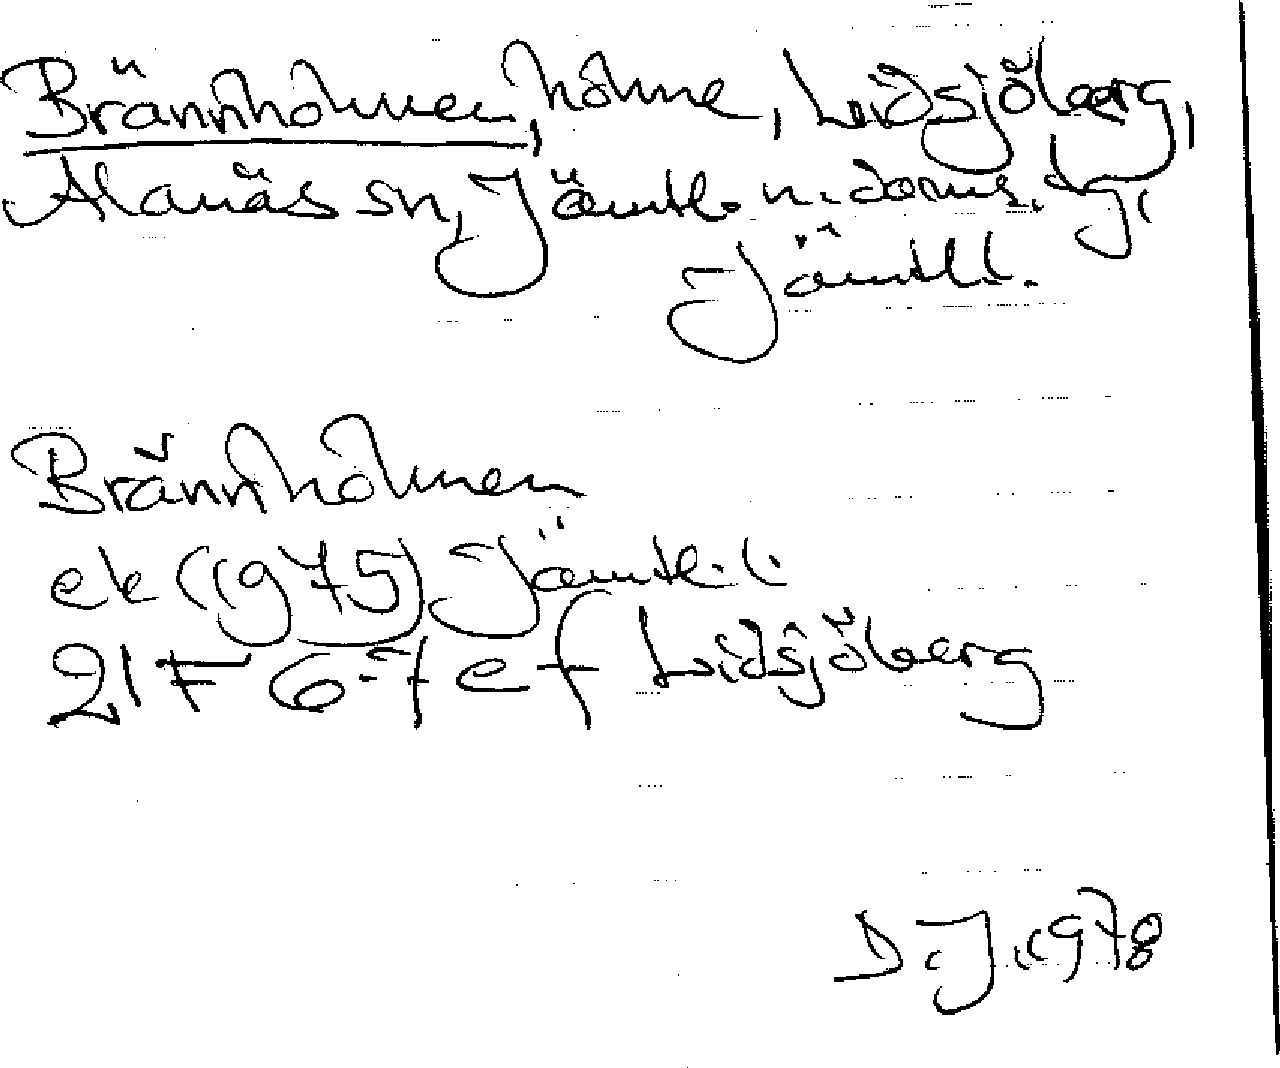 Brännholmen, holme, Lidsjöberg,
Alanäs sn, Jämtl. n. doms. dg,
Jämtl.l.
Brännholmen
ek (1975) Jämtl.l.
21F 6-7 e f Lidsjöberg
D.J. 1978